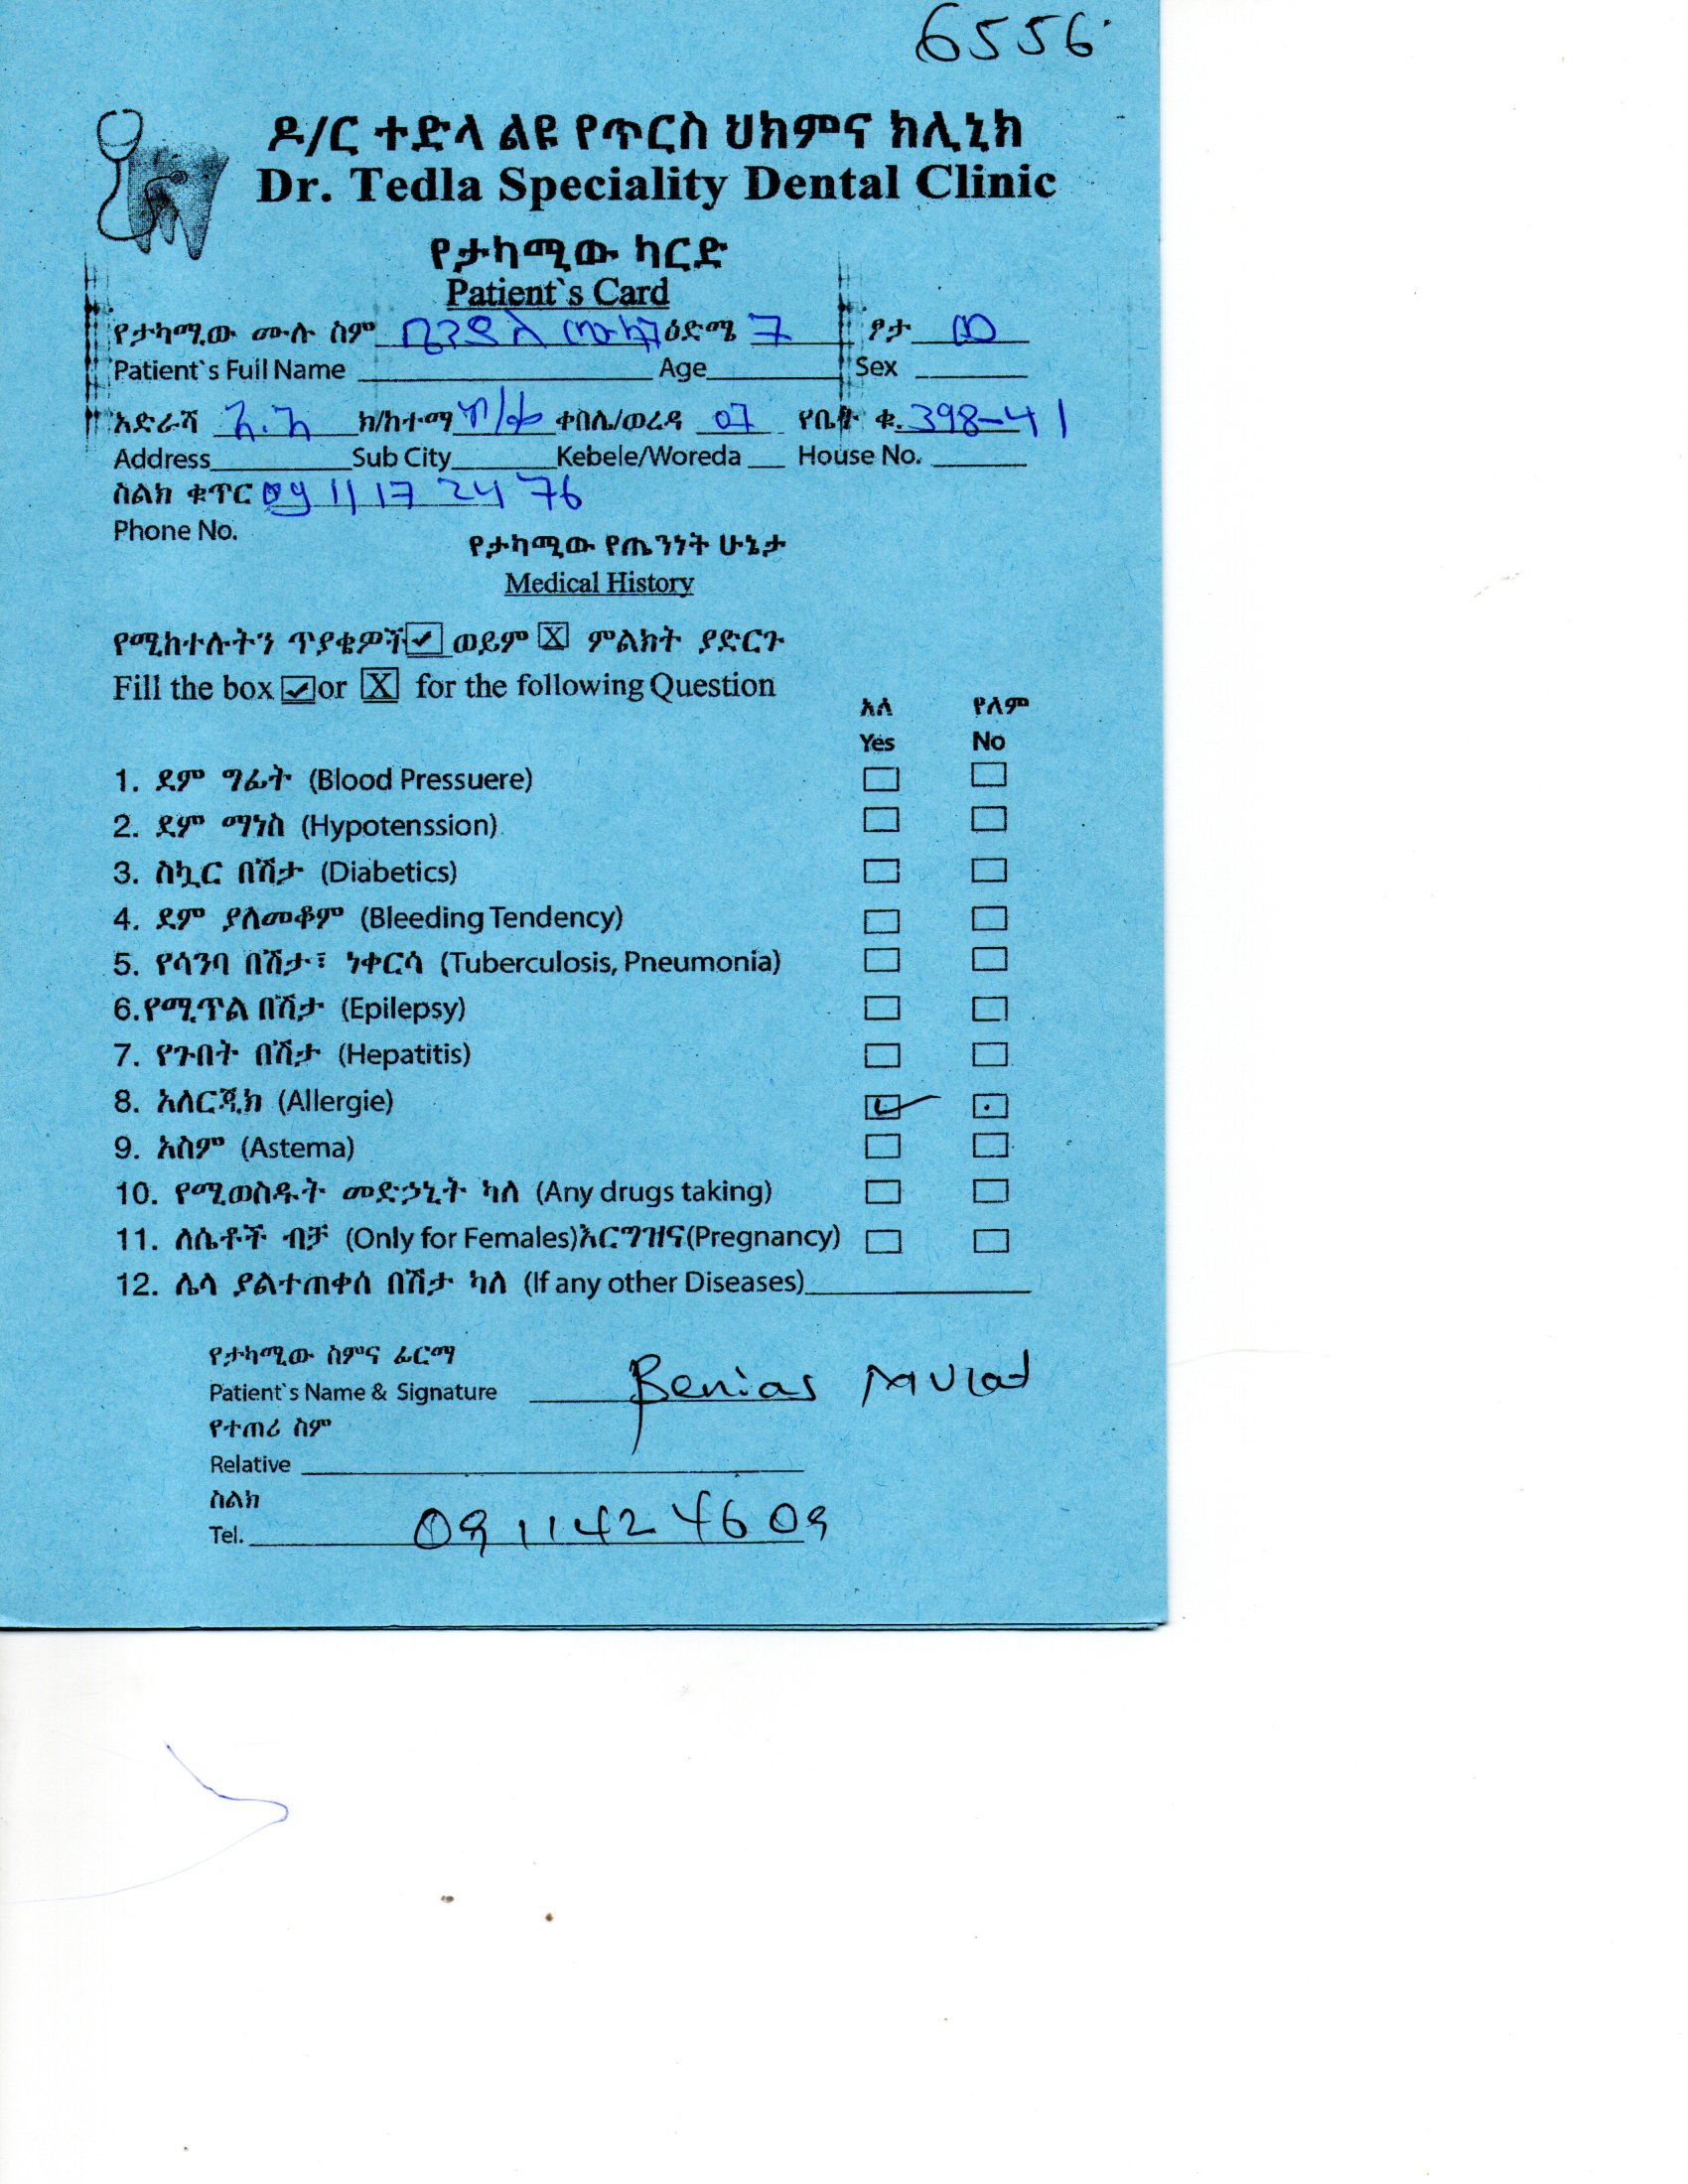 6556
ዶ/ር ተድላ ልዩ የጥርስ ህክምና ክሊኒክ
Dr. Tedla Speciality Dental Clinic
የታካሚው ካርድ
Patient`s Card
የታካሚው ሙሉ ስም ዕድሜ 7 ፆታ ወ
Patient`s Full Name Age Sex
አድራሻ አ.አ ክ/ከተማ ቀበሌ/ወረዳ 07 የቤት ቁ. 398-41
Address Sub City Kebele/Woreda House No.
ስልክ ቁጥር 0911 17 24 76
Phone No.
የታካሚው የጤንነት ሁኔታ
Medical History
የሚከተሉትን ጥያቄዎች ✓ ወይም X ምልክት ያድርጉ
Fill the box ✓ or X for the following Question
አለ የለም
Yes No
1. ደም ግፊት (Blood Pressuere)
2. ደም ማነስ (Hypotenssion)
3. ስኳር በሽታ (Diabetics)
4. ደም ያለመቆም (Bleeding Tendency)
5. የሳንባ በሽታ፣ ነቀርሳ (Tuberculosis, Pneumonia)
6.የሚጥል በሽታ (Epilepsy)
7. የጉበት በሽታ (Hepatitis)
8. አለርጂክ (Allergie) ✓
9. አስም (Astema)
10. የሚወስዱት መድኃኒት ካለ (Any drugs taking)
11. ለሴቶች ብቻ (Only for Females)እርግዝና(Pregnancy)
12. ሌላ ያልተጠቀሰ በሽታ ካለ (If any other Diseases)
የታካሚው ስምና ፊርማ
Patient`s Name & Signature Benias Mulat
የተጠሪ ስም
Relative
ስልክ
Tel. 0911424609